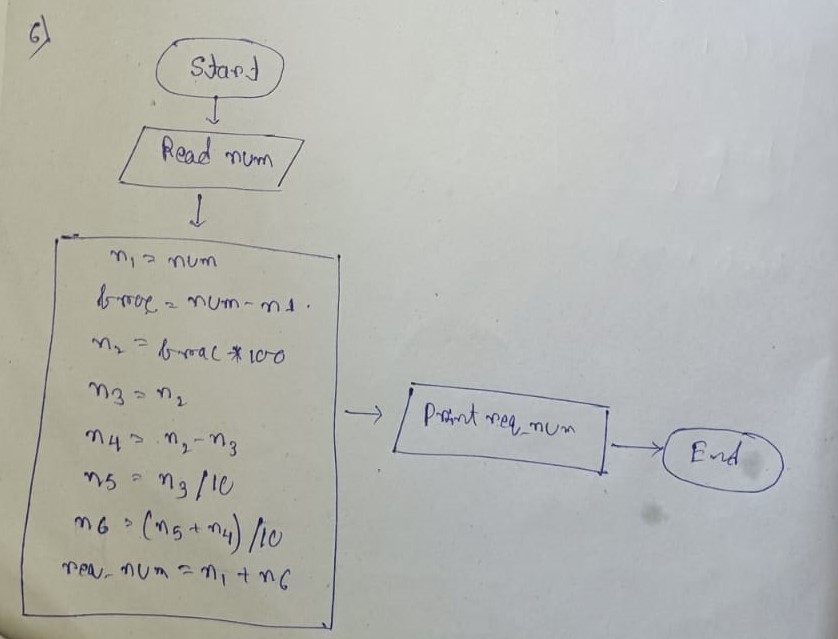 6)
Start
Read num
n1 = num
frac = num - n1.
n2 = frac * 100
n3 = n2
n4 = n2 - n3
n5 = n3 / 10
n6 = (n5 + n4) / 10
req_num = n1 + n6
Print req_num
End